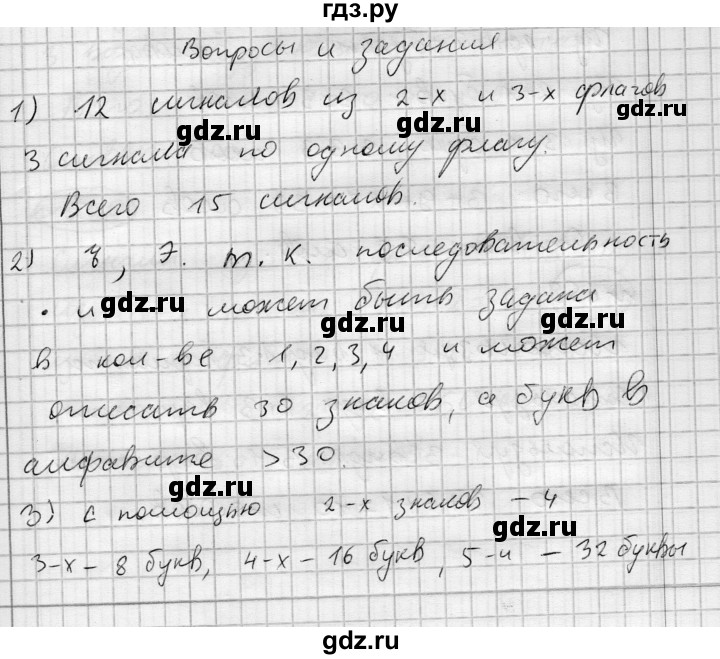 гдз.ру
Вопросы и задания
1) 12 сигналов из 2-х и 3-х флагов
gdz.ru gdz.ru
3 сигнала по одному флагу.
Всего 15 сигналов.
2) Э. т.к. последовательность
• и gdz.ru может быть задана
gdz.ru
в кол-ве 1, 2, 3, 4 и может
описать 30 знаков, а букв в
алфавите >30.
gdz.ru gdz.ru
3) с помощью 2-х знаков – 4
gdz.ru gdz.ru
3-х – 8 букв, 4-х – 16 букв, 5-и – 32 буквы
gdz.ru